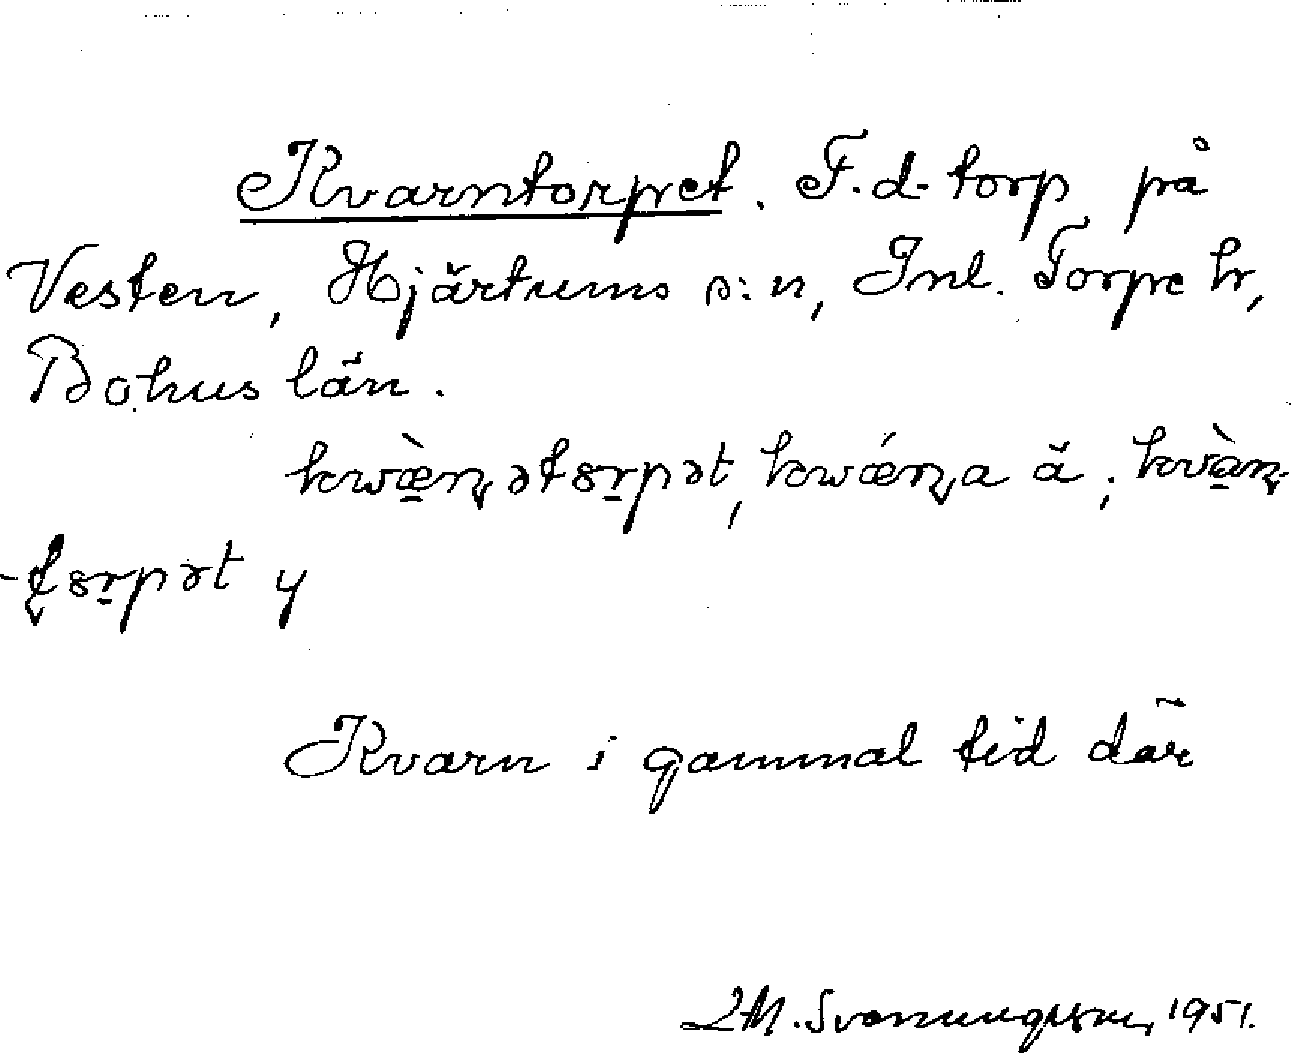 Kvarntorpet. F.d. torp på
Vesten, Hjärtums s:n, Inl. Torpe hr,
Bohus län.
kwæ̀ɳətsrpət, kwǽɳa ä; kvàɳ-
-ʈsrpət y
Kvarn i gammal tid där
LM. Svenungsson, 1951.